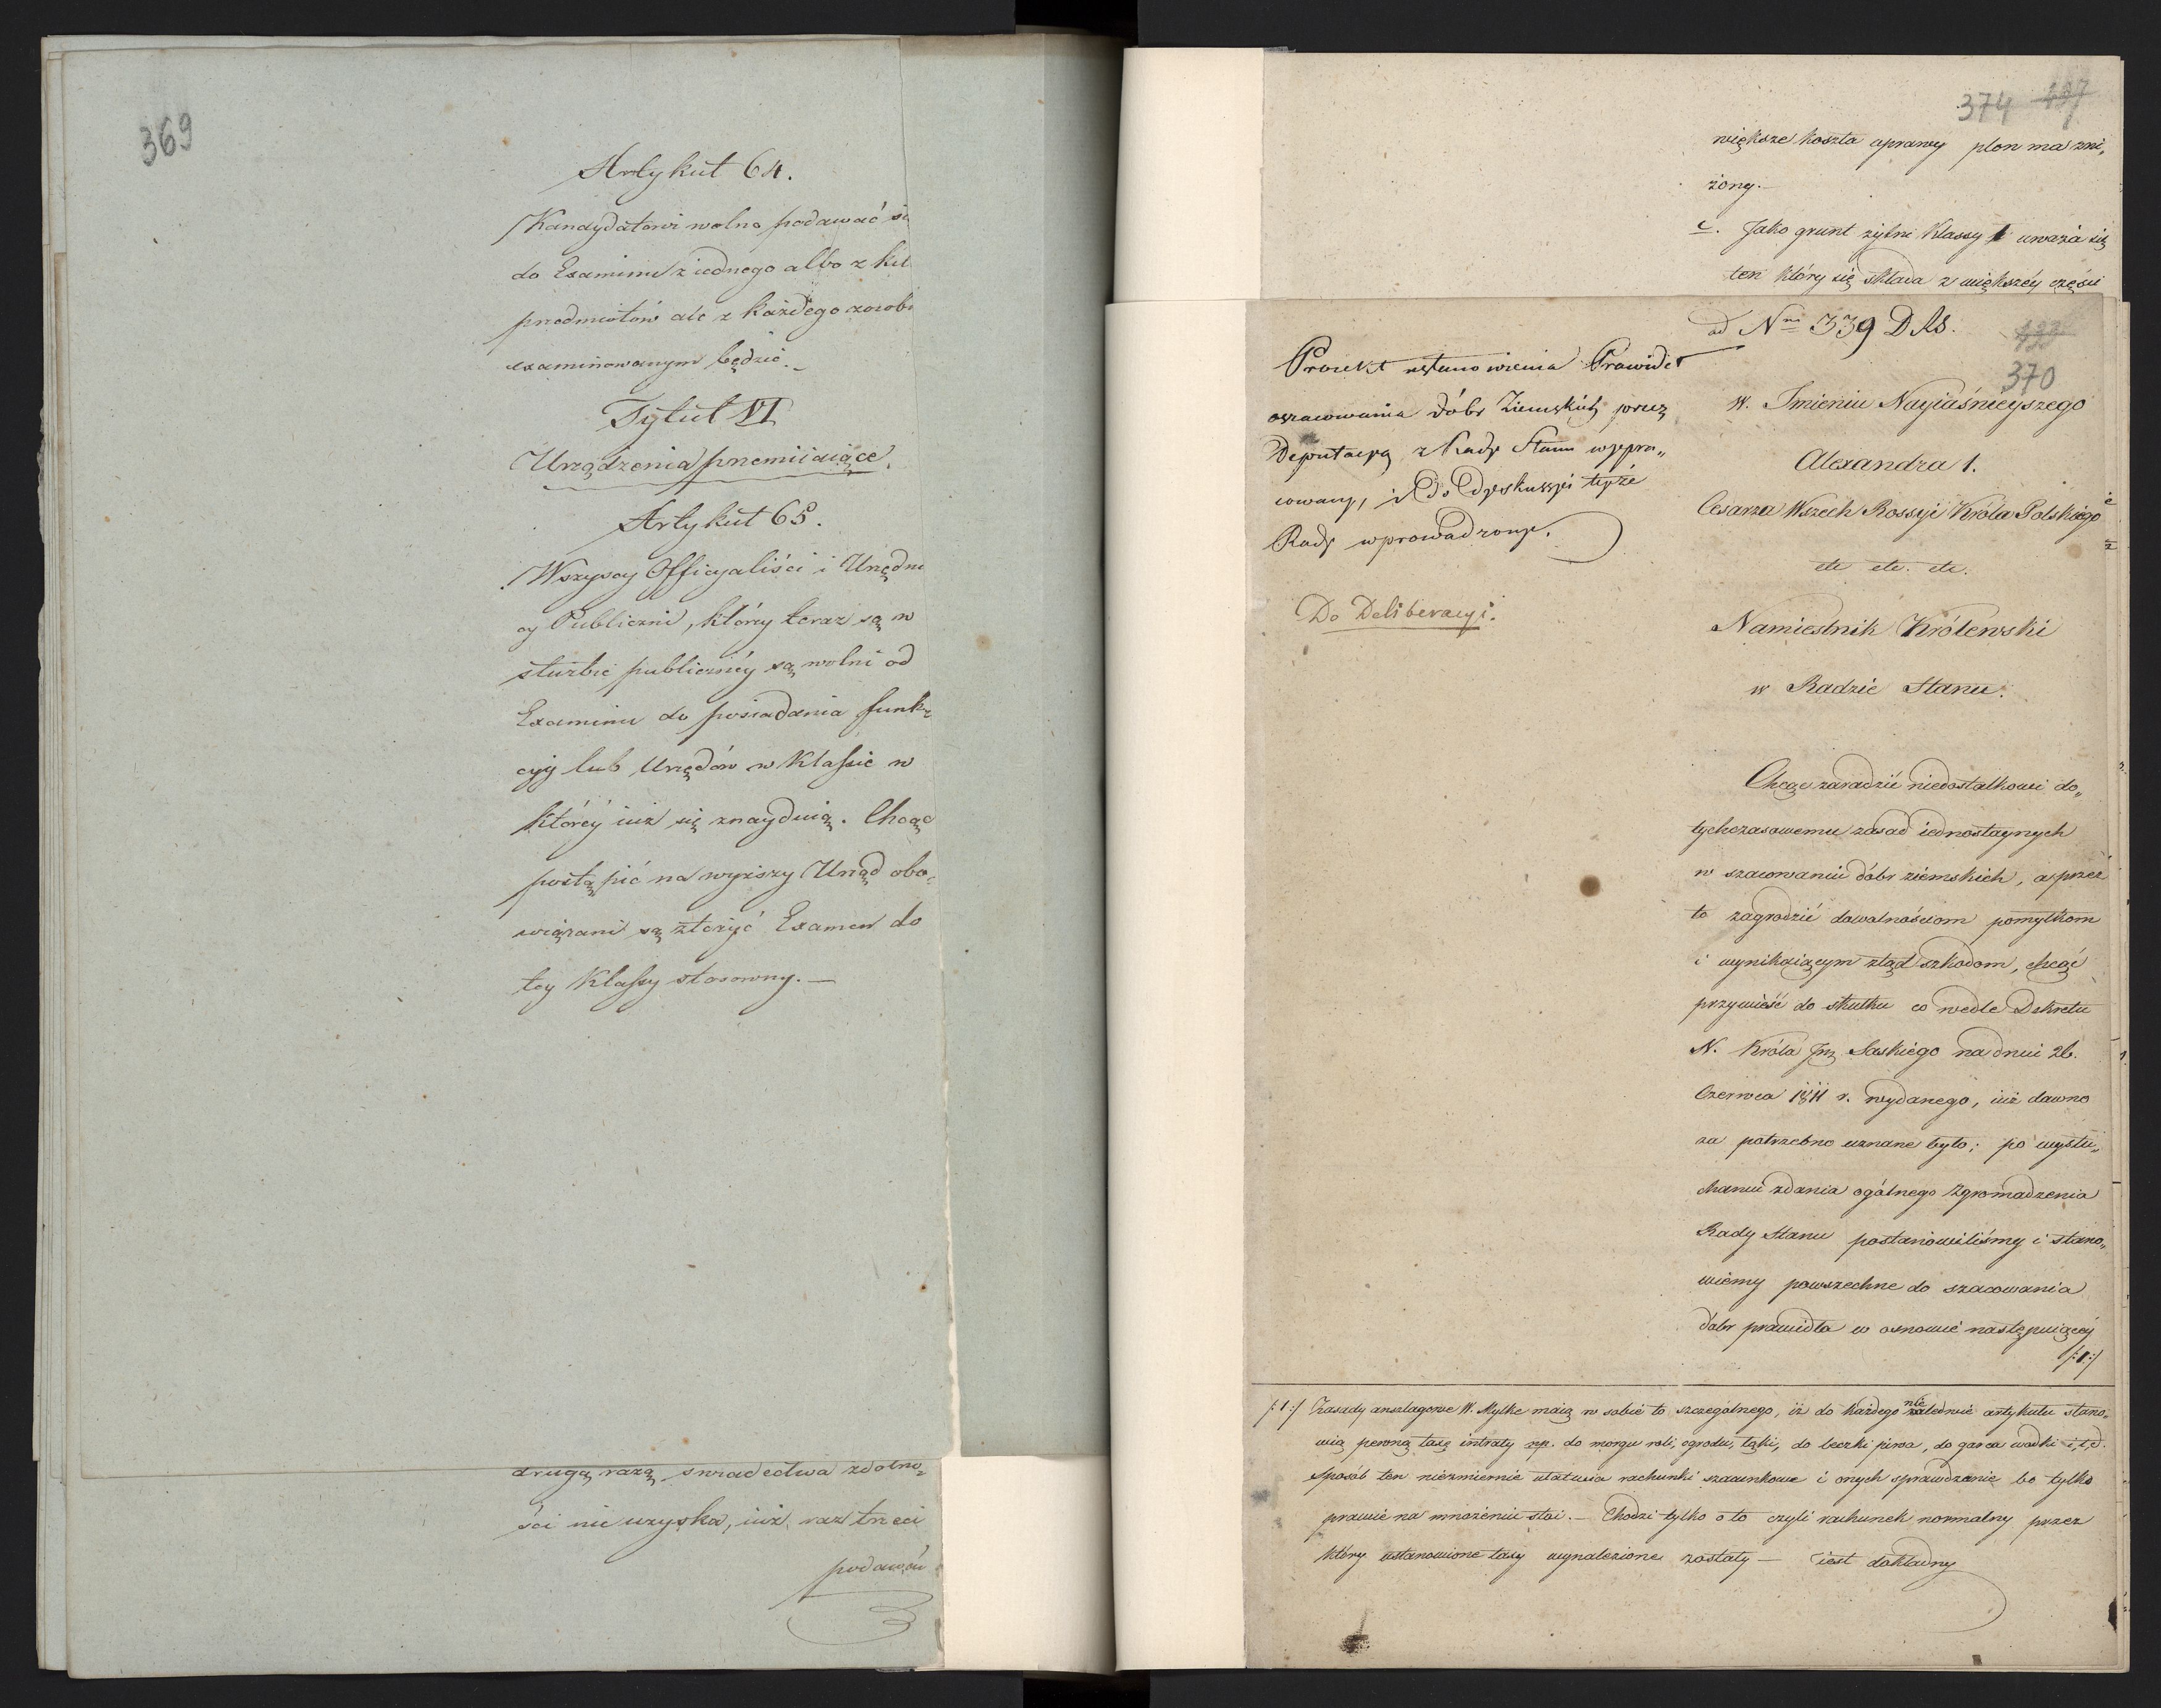 369
Artykuł 64.
Kandydatowi wolno podawać si
do Examinu z iednego albo z kil
przedmiotów ale z każdego zosob
examinowanym będzie._
Tytuł VI
Urządzenia przemiiaiące.
Artykuł 65.
Wszyscy Officyaliści i Urzędni
cy Publiczni, którzy teraz są w
służbie publicznéy są wolni od
Examinu do posiadania funk-
cyy lub Urzędów w Klassie w
któréy iuż się znayduią. Chcąc
postąpić na wyższy Urząd obo-
wiązani są złożyć Examen do
tey Klassy stosowny. —
drugą razą swiadectwa zdolno-
ści nie uzyska, iuż raz trzeci
podawać
374 137
większe koszta uprawy plon ma zni„
żony.—
c. Jako grunt żytni Klassy 1 uważa się
ten który się składa z większéy części
ad Nro 339 D.R.S.
133
370
Proiekt ustanowienia Prawideł
oszacowania dóbr Ziemskich przez
Deputacyą z Rady Stanu wypra„
cowany, i do Dyskussyi teyże
Rady wprowadzony.
Do Deliberacyi.
W. Imieniu Nayiaśnieyszego
Alexandra 1.
Cesarza Wszech Rossyi Króla Polskiego
etc etc. etc.
Namiestnik Królewski
w Radzie Stanu.
Chcąc zaradzić niedostatkowi do„
tychczasowemu zasad iednostaynych
w szacowaniu dóbr ziemskich, a przez
to zagrodzić dowolnościom pomyłkom
i wynikaiącym ztąd szkodom, chcąc
przywieść do skutku co wedle Dekretu
N. Króla Jmę Saskiego na dniu 26.
Czerwca 1811 r. wydanego, iuż dawno
za potrzebne uznane było; po wysłu„
chaniu zdania ogólnego Zgromadzenia
Rady Stanu postanowiliśmy i stano„
wiemy powszechne do szacowania
dóbr prawidła w osnowie następuiącéy
/:1:/
/:1:/ Zasady anszlagowe W. Mylke maią w sobie to szczegolnego, iż do każdego nie zaledwie artykułu stano„
wią pewną taxę intraty np. do morgu roli, ogrodu, łąki, do beczki piwa, do garca wodki i,t,d.
Sposób ten niezmiernie ułatwia rachunki szacunkowe i onych sprawdzanie bo tylko
prawie na mnożeniu stoi. — Chodzi tylko o to czyli rachunek normalny przez
który ustanowione taxy wynalezione zostały — iest dokładny